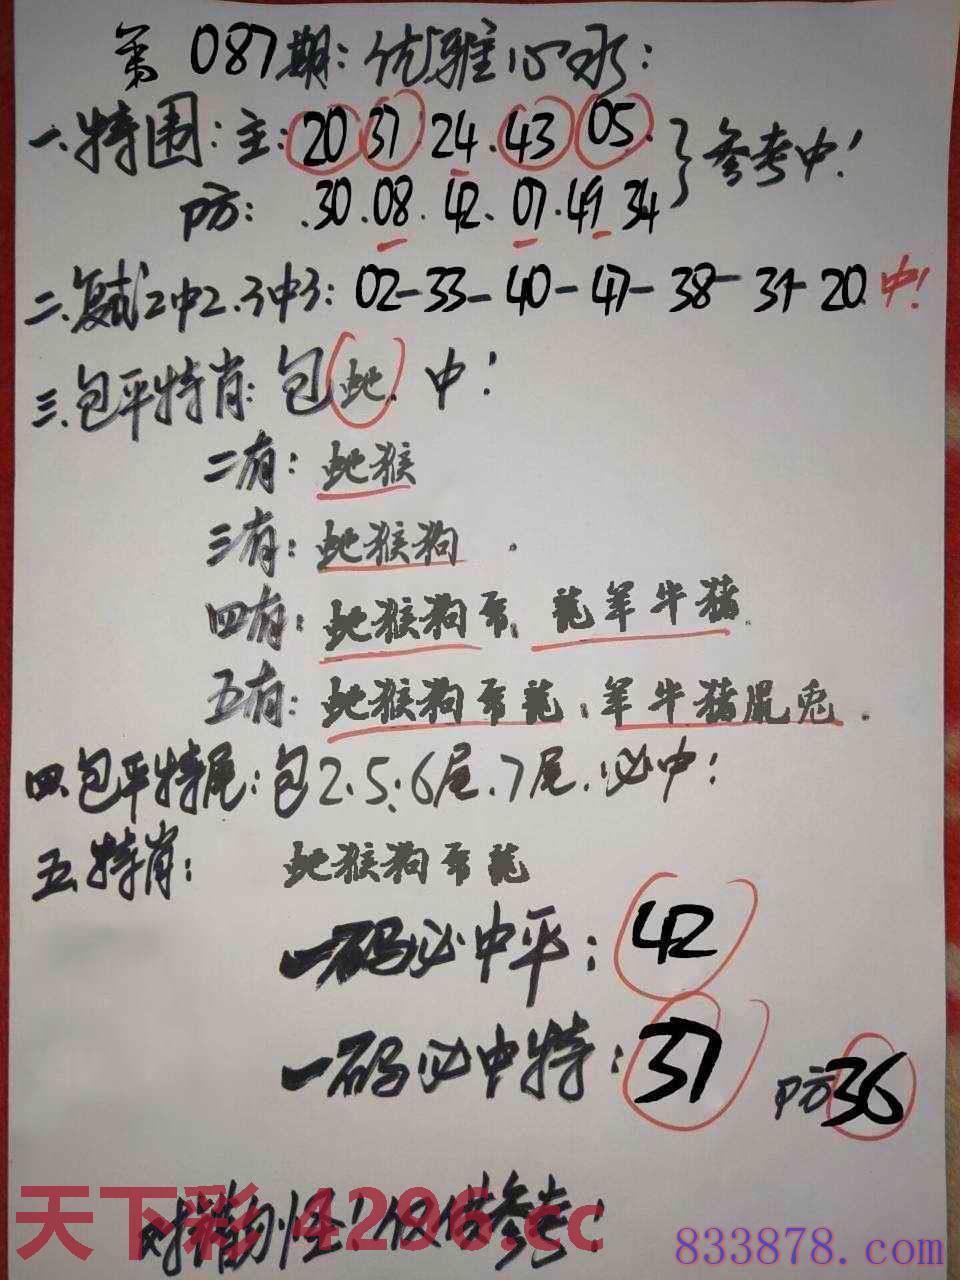 第087期:优雅心水:
一.特围:主:20 37 24.43 05.}参考中!
防:.30.08.42.07.49 34
二.复试2中2.3中3:02-33-40-47-38-31-20.中!
三.包平特肖:包蛇.中!
二有:蛇猴
三有:蛇猴狗.
四有:蛇猴狗 龍羊牛猪.
五有:蛇猴狗 龍.羊牛猪鼠兎.
四.包平特尾:包2.5.6尾.7尾.必中!
五.特肖:蛇猴狗 龍
一码必中平:42
一码必中特:37 防36
天下彩 4296.cc
对 错勿怪!仅供参考!
833878.com